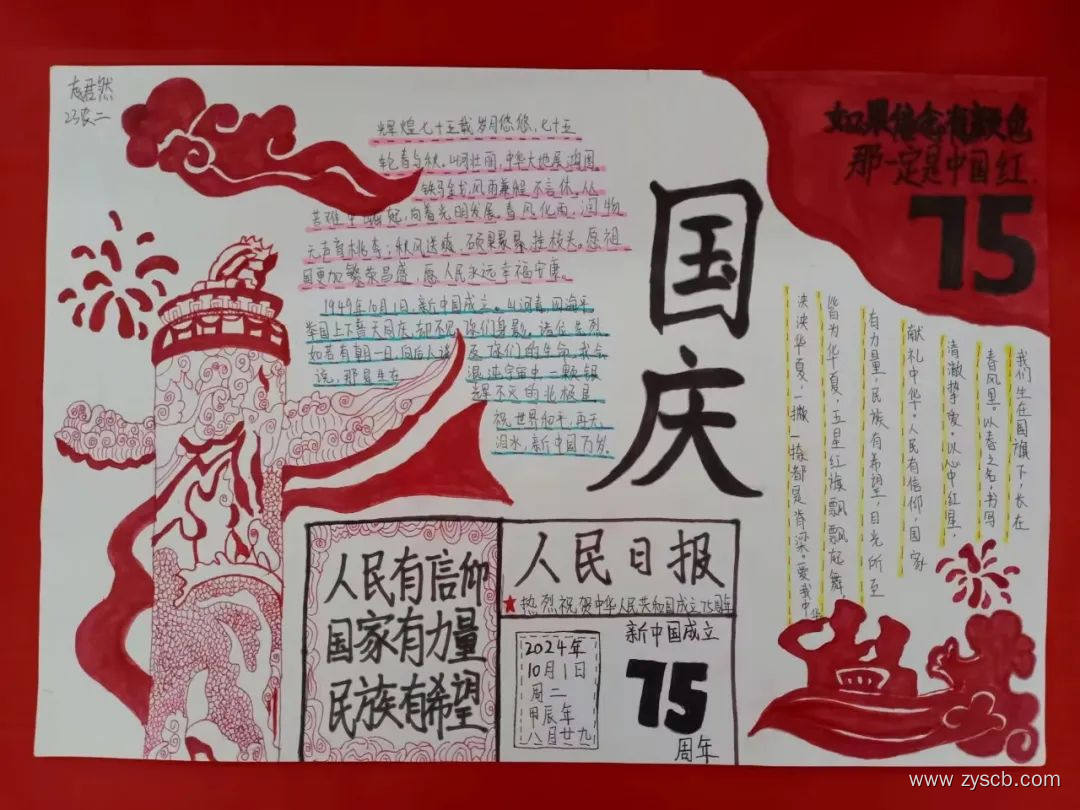 君然
23农二
辉煌七十五载岁月悠悠，七十五
轮春与秋。山河壮丽，中华大地展鸿图
铁马金戈，风雨兼程不言休。从
苦难中崛起，向着光明发展。春风化雨，润物
无声育桃李；秋风送爽，硕果累累挂枝头。愿祖
国更加繁荣昌盛，愿人民永远幸福安康。
1949年10月1日，新中国成立。山河春，四海平
举国上下普天同庆，却不见你们身影，诸位先烈
如若有朝一日，向后人谈及你们的生命，我会
说，那是生在混沌宇宙中一颗银
辉不灭的北极星
祝世界和平，再无
泪水，新中国万岁。
国庆
如果信念有颜色
那一定是中国红
75
我们生在国旗下，长在
春风里。以春之名，书写
清澈挚爱，以心中红星，
献礼中华。人民有信仰，国家
有力量，民族有希望，目光所至
皆为华夏，五星红旗飘飘起舞，
泱泱华夏，一撇一捺都是脊梁。爱我中华
人民有信仰
国家有力量
民族有希望
人民日报
热烈祝贺中华人民共和国成立75周年
2024年
10月1日
周二
甲辰年
八月廿九
新中国成立
75
周年
www.zyscb.com